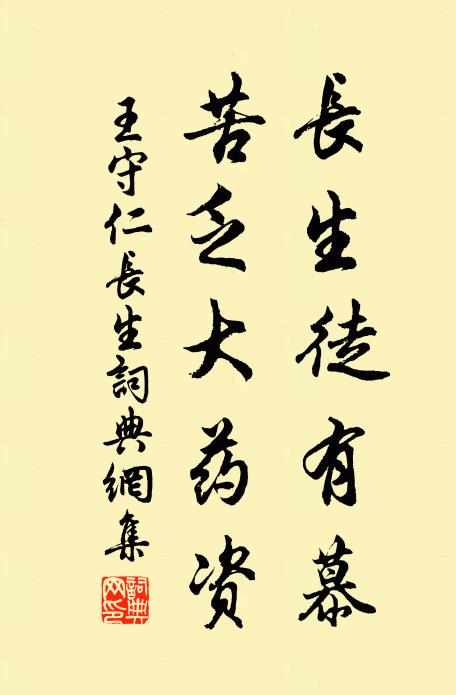 長生徒有慕
苦乏大药资
王守仁長生詞典網集
詞典网印